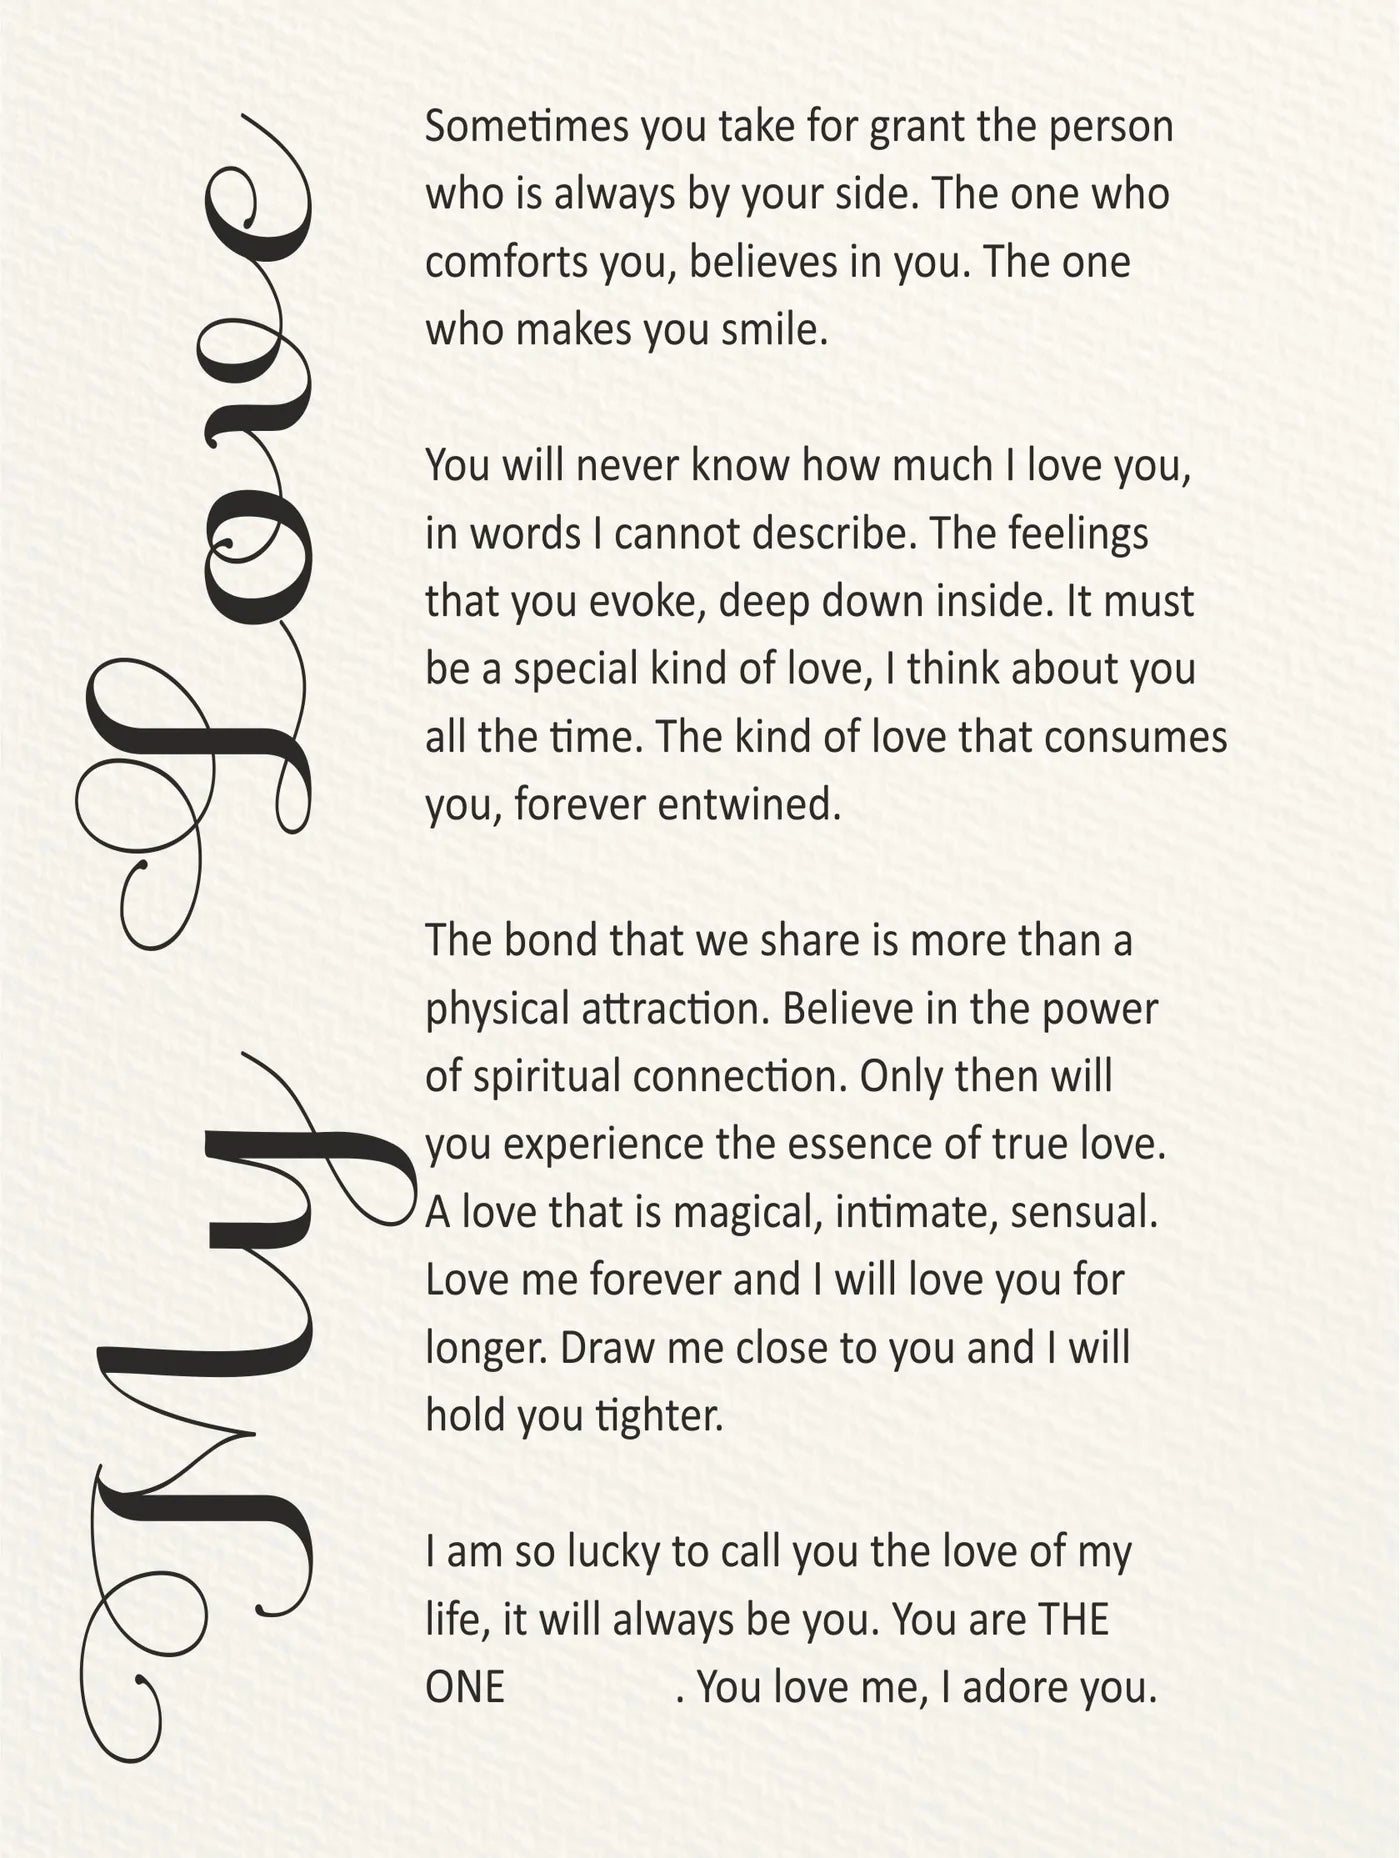 My Love
Sometimes you take for grant the person
who is always by your side. The one who
comforts you, believes in you. The one
who makes you smile.
You will never know how much I love you,
in words I cannot describe. The feelings
that you evoke, deep down inside. It must
be a special kind of love, I think about you
all the time. The kind of love that consumes
you, forever entwined.
The bond that we share is more than a
physical attraction. Believe in the power
of spiritual connection. Only then will
you experience the essence of true love.
A love that is magical, intimate, sensual.
Love me forever and I will love you for
longer. Draw me close to you and I will
hold you tighter.
I am so lucky to call you the love of my
life, it will always be you. You are THE
ONE . You love me, I adore you.